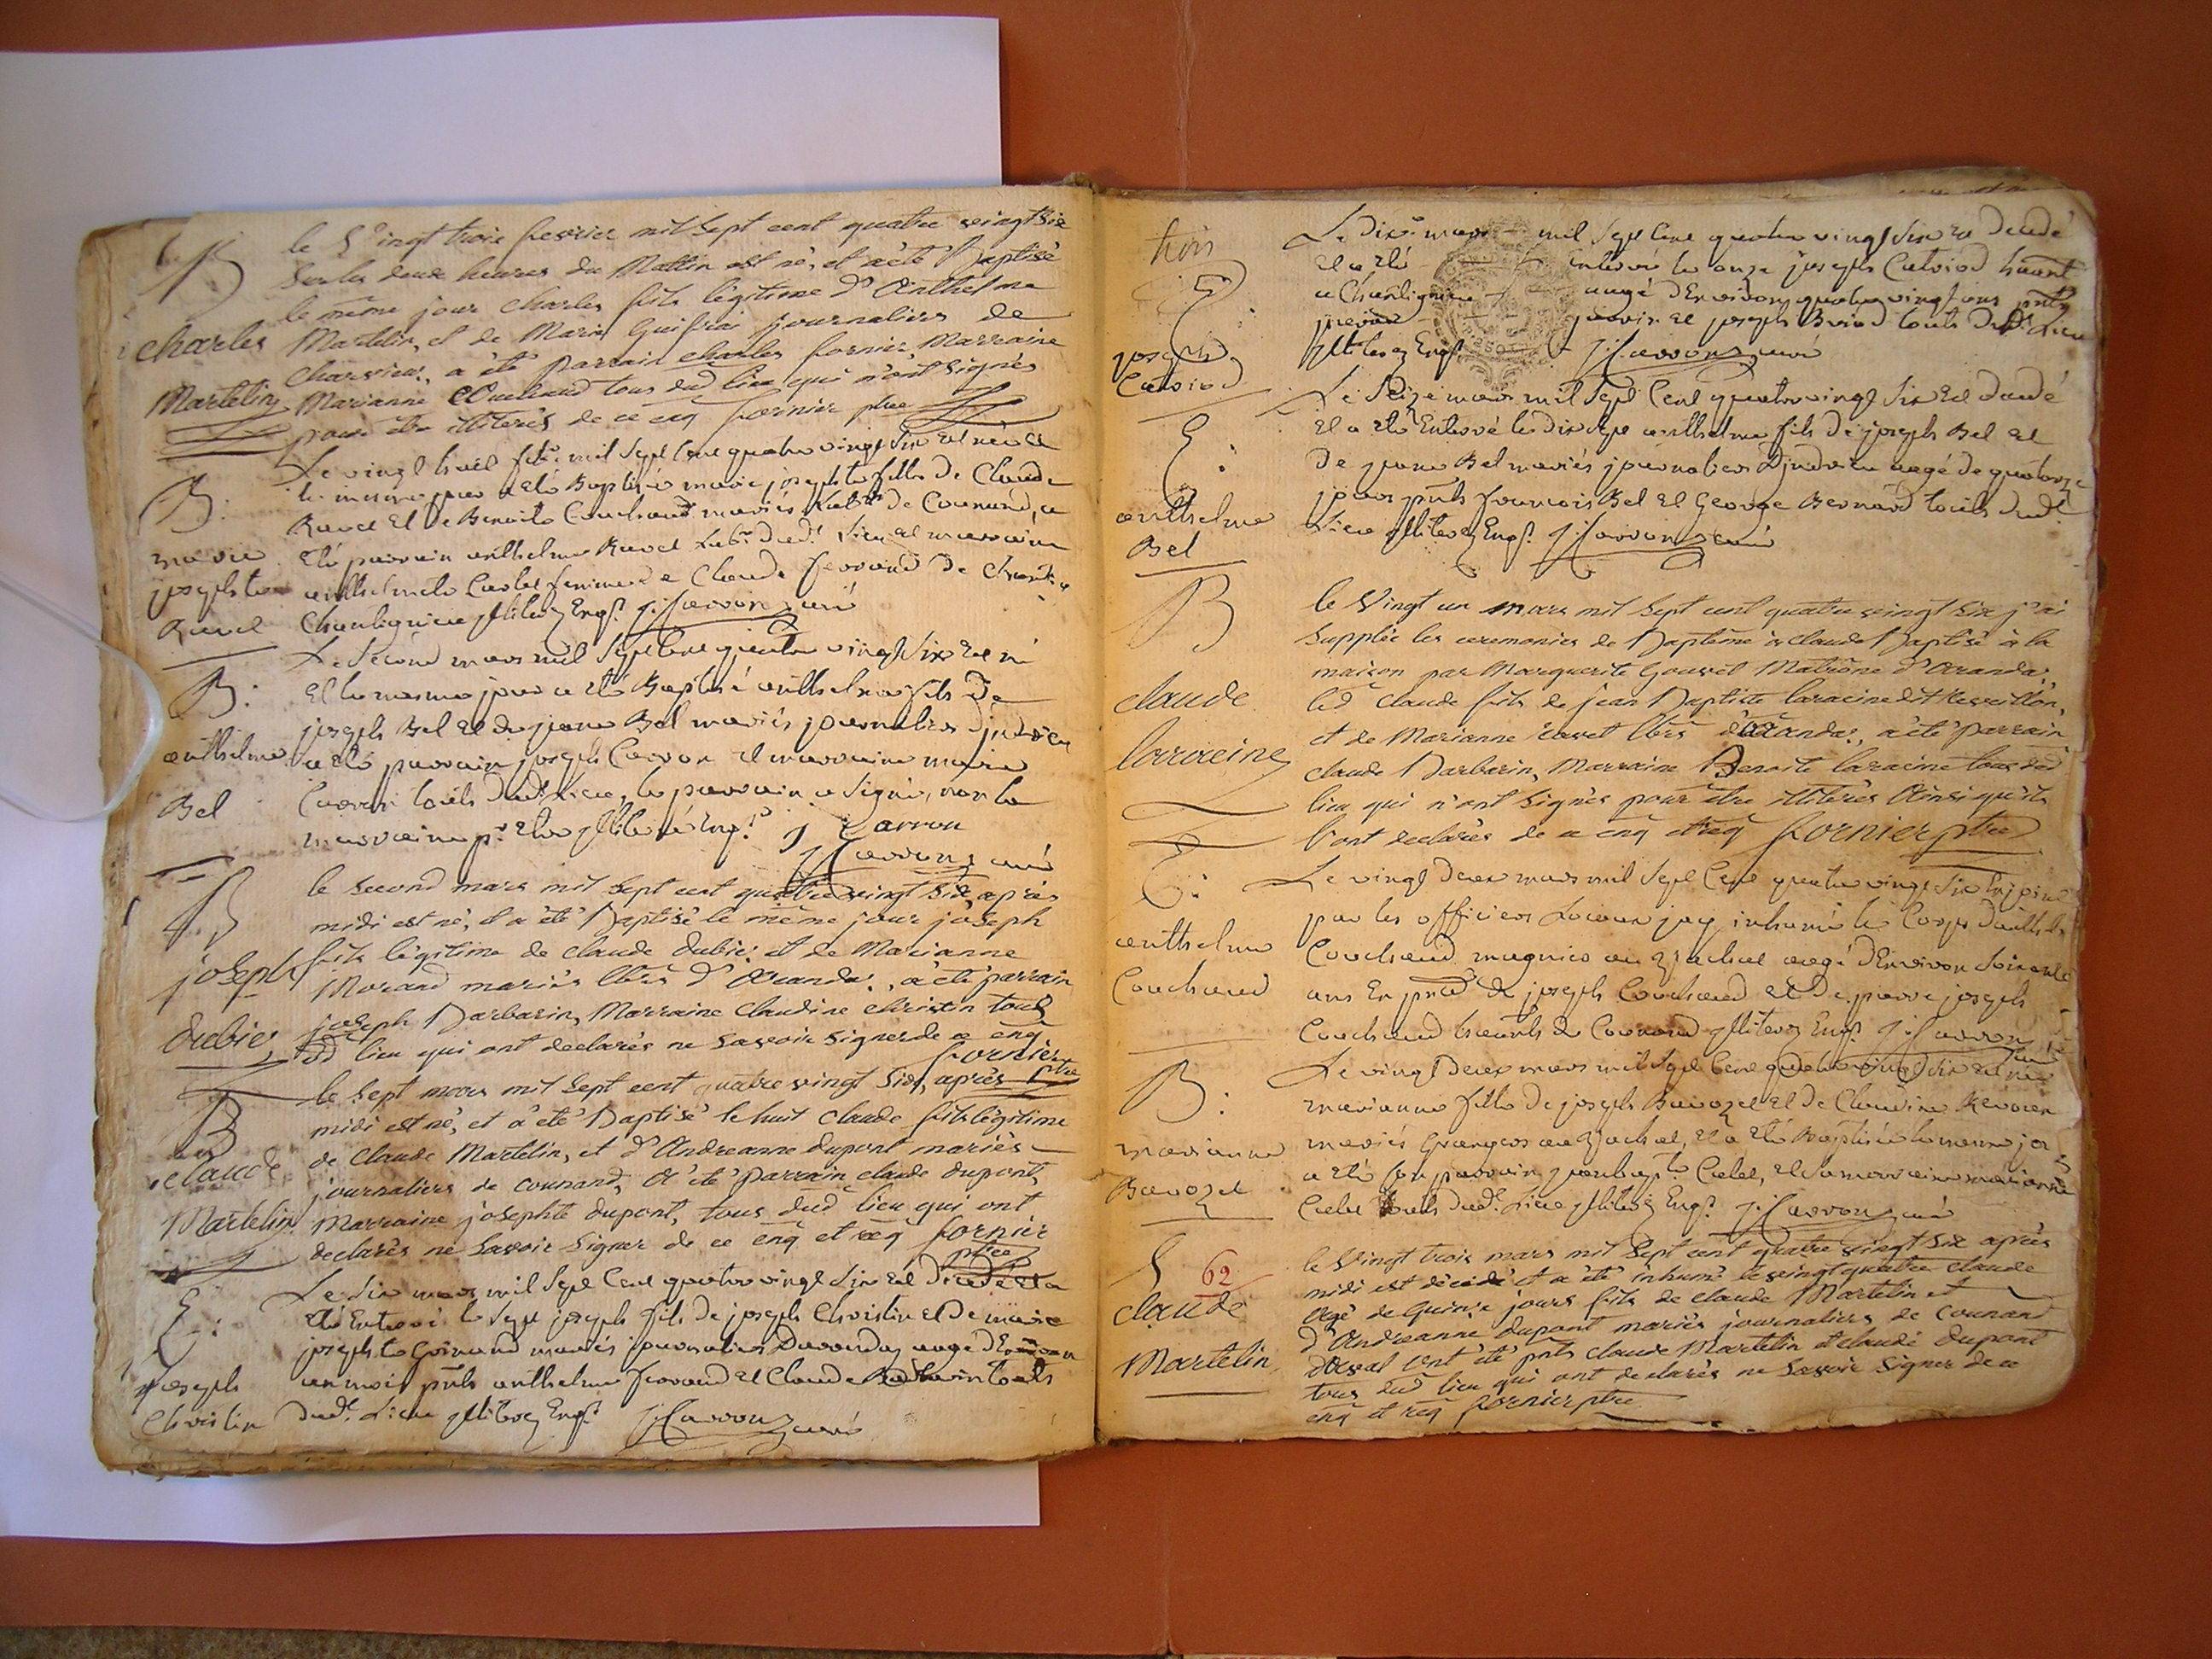 B
charles
Martelin
le Vingt trois fevrier mil Sept cent quatre vingt Six
Sur les deux heures du Mattin est né, et a été Baptisé
le même jour charles fils légitime d'Anthelme
Martelin, et de Marie journaliers de
a été parrain charles fornier, Marraine
Marianne Couchoud tous dud lieu qui n'ont signés
pour être illiterés de ce enq fornier ptre
B.
marie
josephte
Ravel
Le vingt huit fév. mil Sept Cent quatre vingt Six Est née et
le mesme jour a Eté Baptisée marie josephte fille de Claude
Ravel Et de Benoite Couchoud mariés Lab.rs de Counand, a
Eté parrain anthelme Ravel Lab.r dud.t Lieu et marraine
anthelmete femme de Claude ferrand de
Chantignieu Enq.s J: Carron curé
B:
anthelme
Bel
Le Second mars mil Sept Cent quatre vingt Six Est né
Et le mesme jour a Eté Baptisé anthelme fils De
joseph Bel Et de jeane Bel mariés journaliers
a Eté parrain joseph Carron et marraine marie
Carron touts dud.t Lieu, le parrain a Signé, non la
marraine p.r Etre illiteré Enq.s J Carron
J: Carron curé
B
joseph
dubier
le Second mars mil Sept cent quatre vingt Six, après
midi est né, et a été Baptisé le même jour joseph
fils légitime de claude dubier et de Marianne
Morand mariés lbrs d'Arandas, a été parrain
joseph Barbarin, Marraine Claudine christin tous
dud lieu qui ont declarés ne Savoir Signer de ce enq
fornier
ptre
B
claude
Martelin
le Sept mars mil Sept cent quatre vingt Six, après
midi est né, et a été Baptisé le huit claude fils légitime
de claude Martelin, et d'Andreanne dupont mariés
journaliers de counand, a été Parrain claude dupont,
Marraine josephte dupont, tous dud lieu qui ont
declarés ne Savoir Signer de ce enq et req fornier
ptre
E:
joseph
Christin
Le Six mars mil Sept Cent quatre vingt Six Est Décédé Et a
Eté Enterré le Sept joseph fils de joseph Christin et De marie
josephte Goinand mariés journaliers Darandas aagé
un mois pnts anthelme ferrand et Claude touts
dud.t Lieu illiterez Enq.s J: Carron curé
trois
E:
joseph
Calviod
Le Dix mars mil Sept Cent quatre vingt Six Est Decedé
Et a Eté enterré le onze joseph Calviod
a Chantignieu aagé d'Environ quatre vingt ans pnts
et joseph Briod touts dud.t Lieu
illiterez Enq.s J: Carron curé
E:
anthelme
Bel
Le Seize mars mil Sept Cent quatre vingt Six Est Decedé
Et a Eté Enterré le dix Sept anthelme fils de joseph Bel Et
De jeane Bel mariés journaliers aagé de quatorze
jours pnts francois Bel Et George Bernard touts dud.t
Lieu illiterez Enq.s J: Carron curé
B
claude
laracine
le Vingt un mars mil Sept cent quatre vingt Six j'ai
Supplée les ceremonies de Baptême à claude Baptisé à la
maison par Marguerite Gouvet Matrône d'Arandas,
led claude fils de jean Baptiste laracine dit Reveillon,
et de Marianne ravet lbrs d'arandas, a été parrain
claude Barbarin, Marraine Benoite laracine tous dud
lieu qui n'ont Signés pour être illiterés Ainsi qu'ils
l'ont declarés de ce enq et req fornier ptre
E:
anthelme
Couchoud
Le vingt Deux mars mil Sept Cent quatre vingt Six
par les officiers Locaux jay inhumé le Corps
Couchoud aagé d'Environ Soixante
ans En pnce de joseph Couchoud et De pierre joseph
Couchoud de Counand illiterez Enq.s J: Carron
curé
B:
marianne
Bavozet
Le vingt Deux mars mil Sept Cent quatre vingt Six Est née
marianne fille de joseph Bavozet et de Claudine
mariés Grangers, Et a Eté Baptisée le mesme jour
a Eté Son parrain jeanbapt.e, Et Sa marraine marianne
touts dud.t Lieu illiterez Enq.s J: Carron curé
S 62
claude
Martelin
le Vingt trois mars mil Sept cent quatre vingt Six après
midi est décédé et a été inhumé le vingt quatre claude
agé de quinze jours fils de claude Martelin et
d'Andreanne dupont mariés journaliers de counand
ont été pnts claude Martelin et claude dupont
tous dud lieu qui ont declarés ne Savoir Signer de ce
enq et req fornier ptre